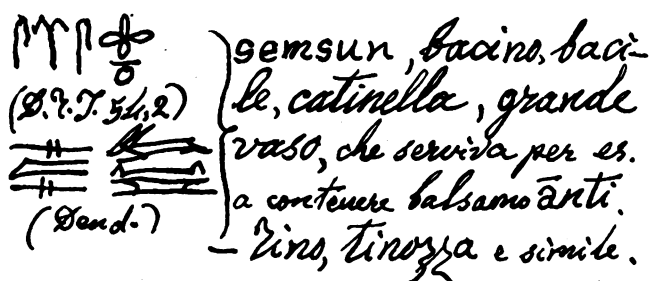 semsun, bacino, baci-
le, catinella, grande
vaso, che serviva per es.
a contenere balsamo ānti.
(Dend.)
– Tino, tinozza e simile.